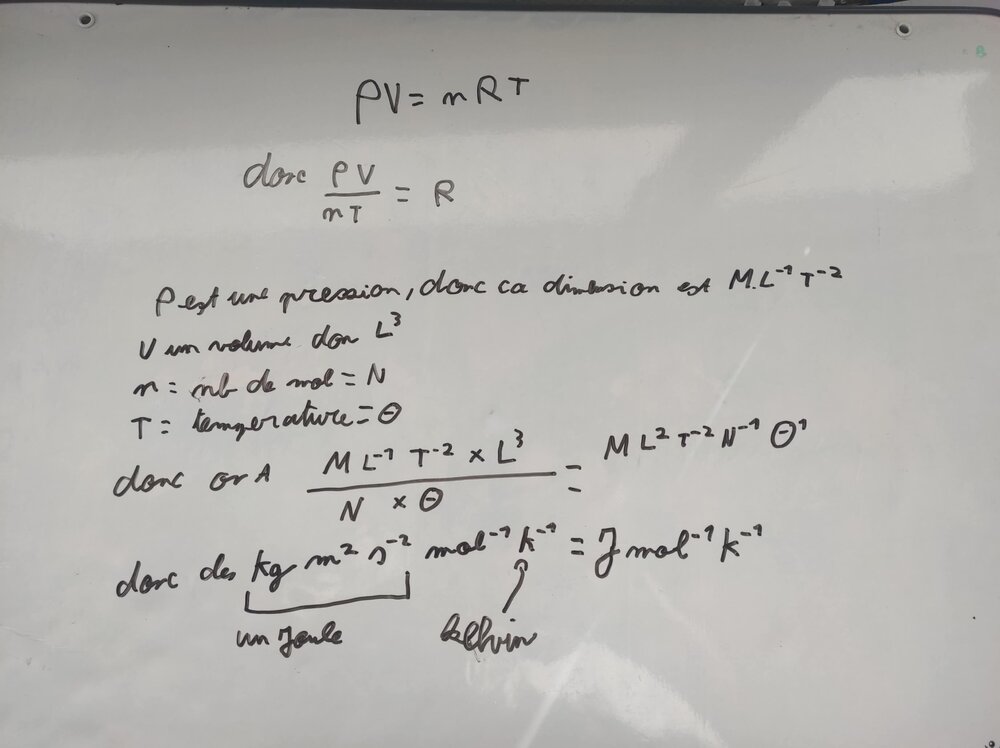 PV = nRT
donc PV/nT = R
P est une pression, donc ca dimension est M.L⁻¹T⁻²
V un volume don L³
n = nb de mol = N
T = temperature = Θ
donc on A M L⁻¹ T⁻² × L³ / N × Θ = M L² T⁻² N⁻¹ Θ¹
donc des kg m² s⁻² mol⁻¹ k⁻¹ = J mol⁻¹ k⁻¹
un Joule kelhvin